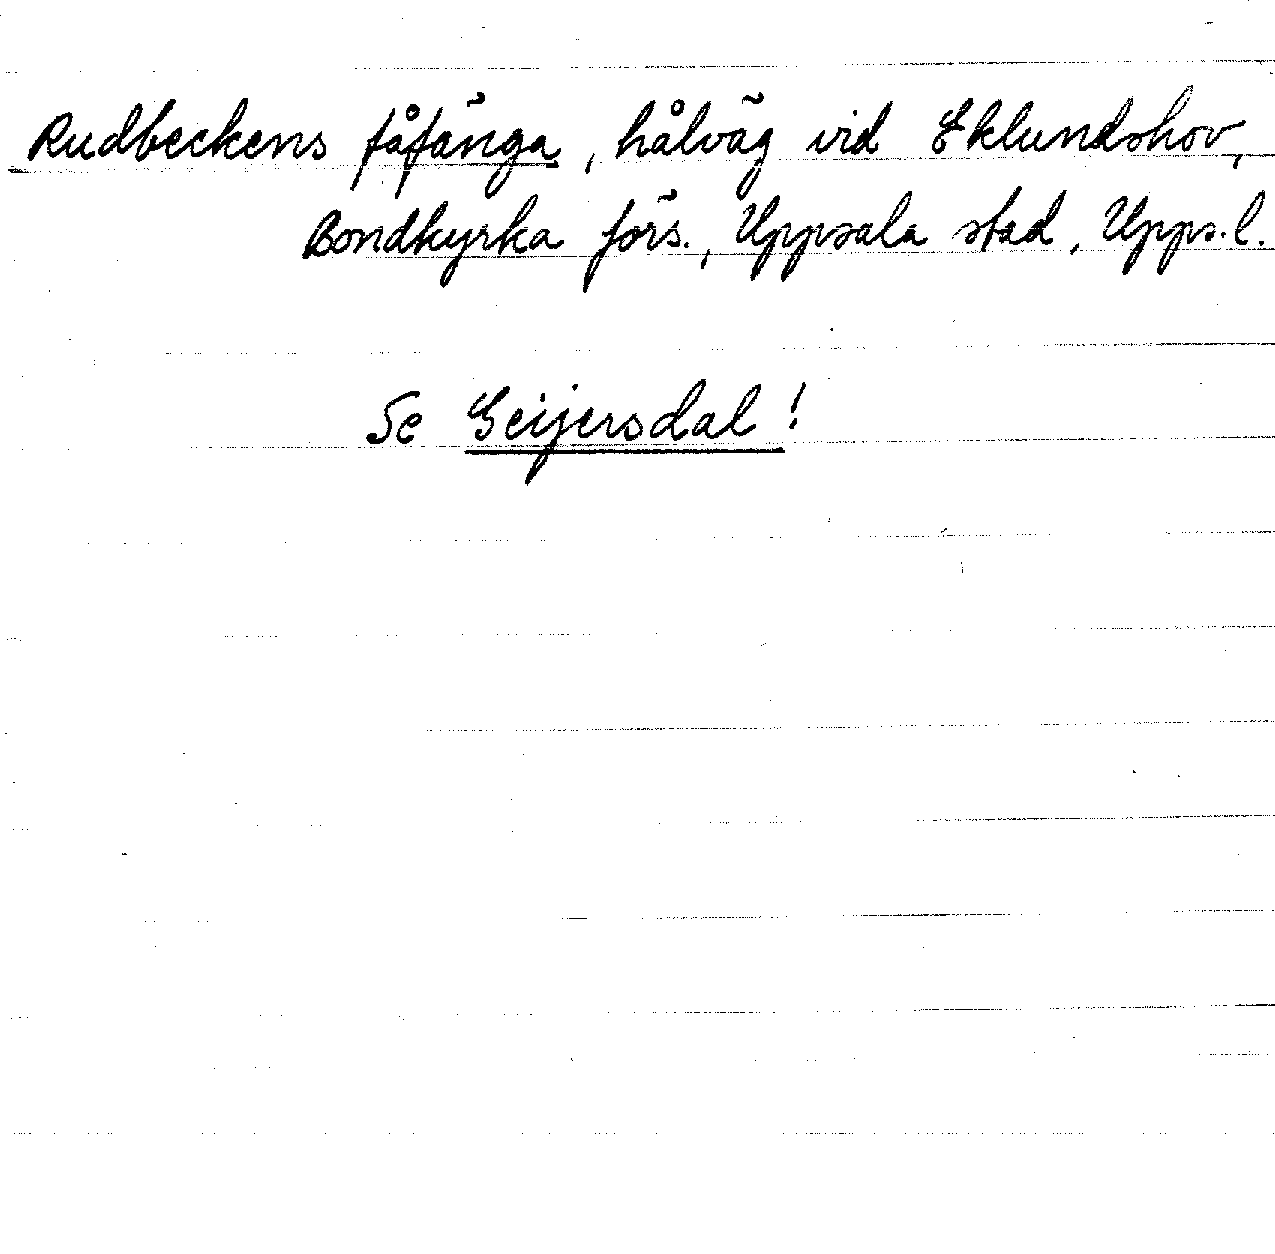 Rudbeckens fåfänga, hålväg vid Eklundshov,
Bondkyrka förs., Uppsala stad, Upps.l.
Se Geijersdal!